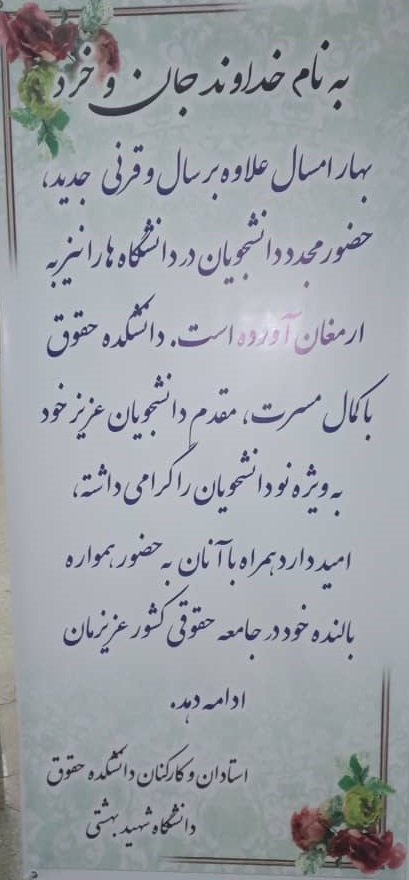 به نام خداوند جان و خرد
بهار امسال علاوه بر سال و قرنی جدید،
حضور مجدد دانشجویان در دانشگاه ها را نیز به
ارمغان آورده است. دانشکده حقوق
با کمال مسرت، مقدم دانشجویان عزیز خود
به ویژه نودانشجویان را گرامی داشته،
امید دارد همراه با آنان به حضور همواره
بالنده خود در جامعه حقوقی کشور عزیزمان
ادامه دهد.
استادان و کارکنان دانشکده حقوق
دانشگاه شهید بهشتی